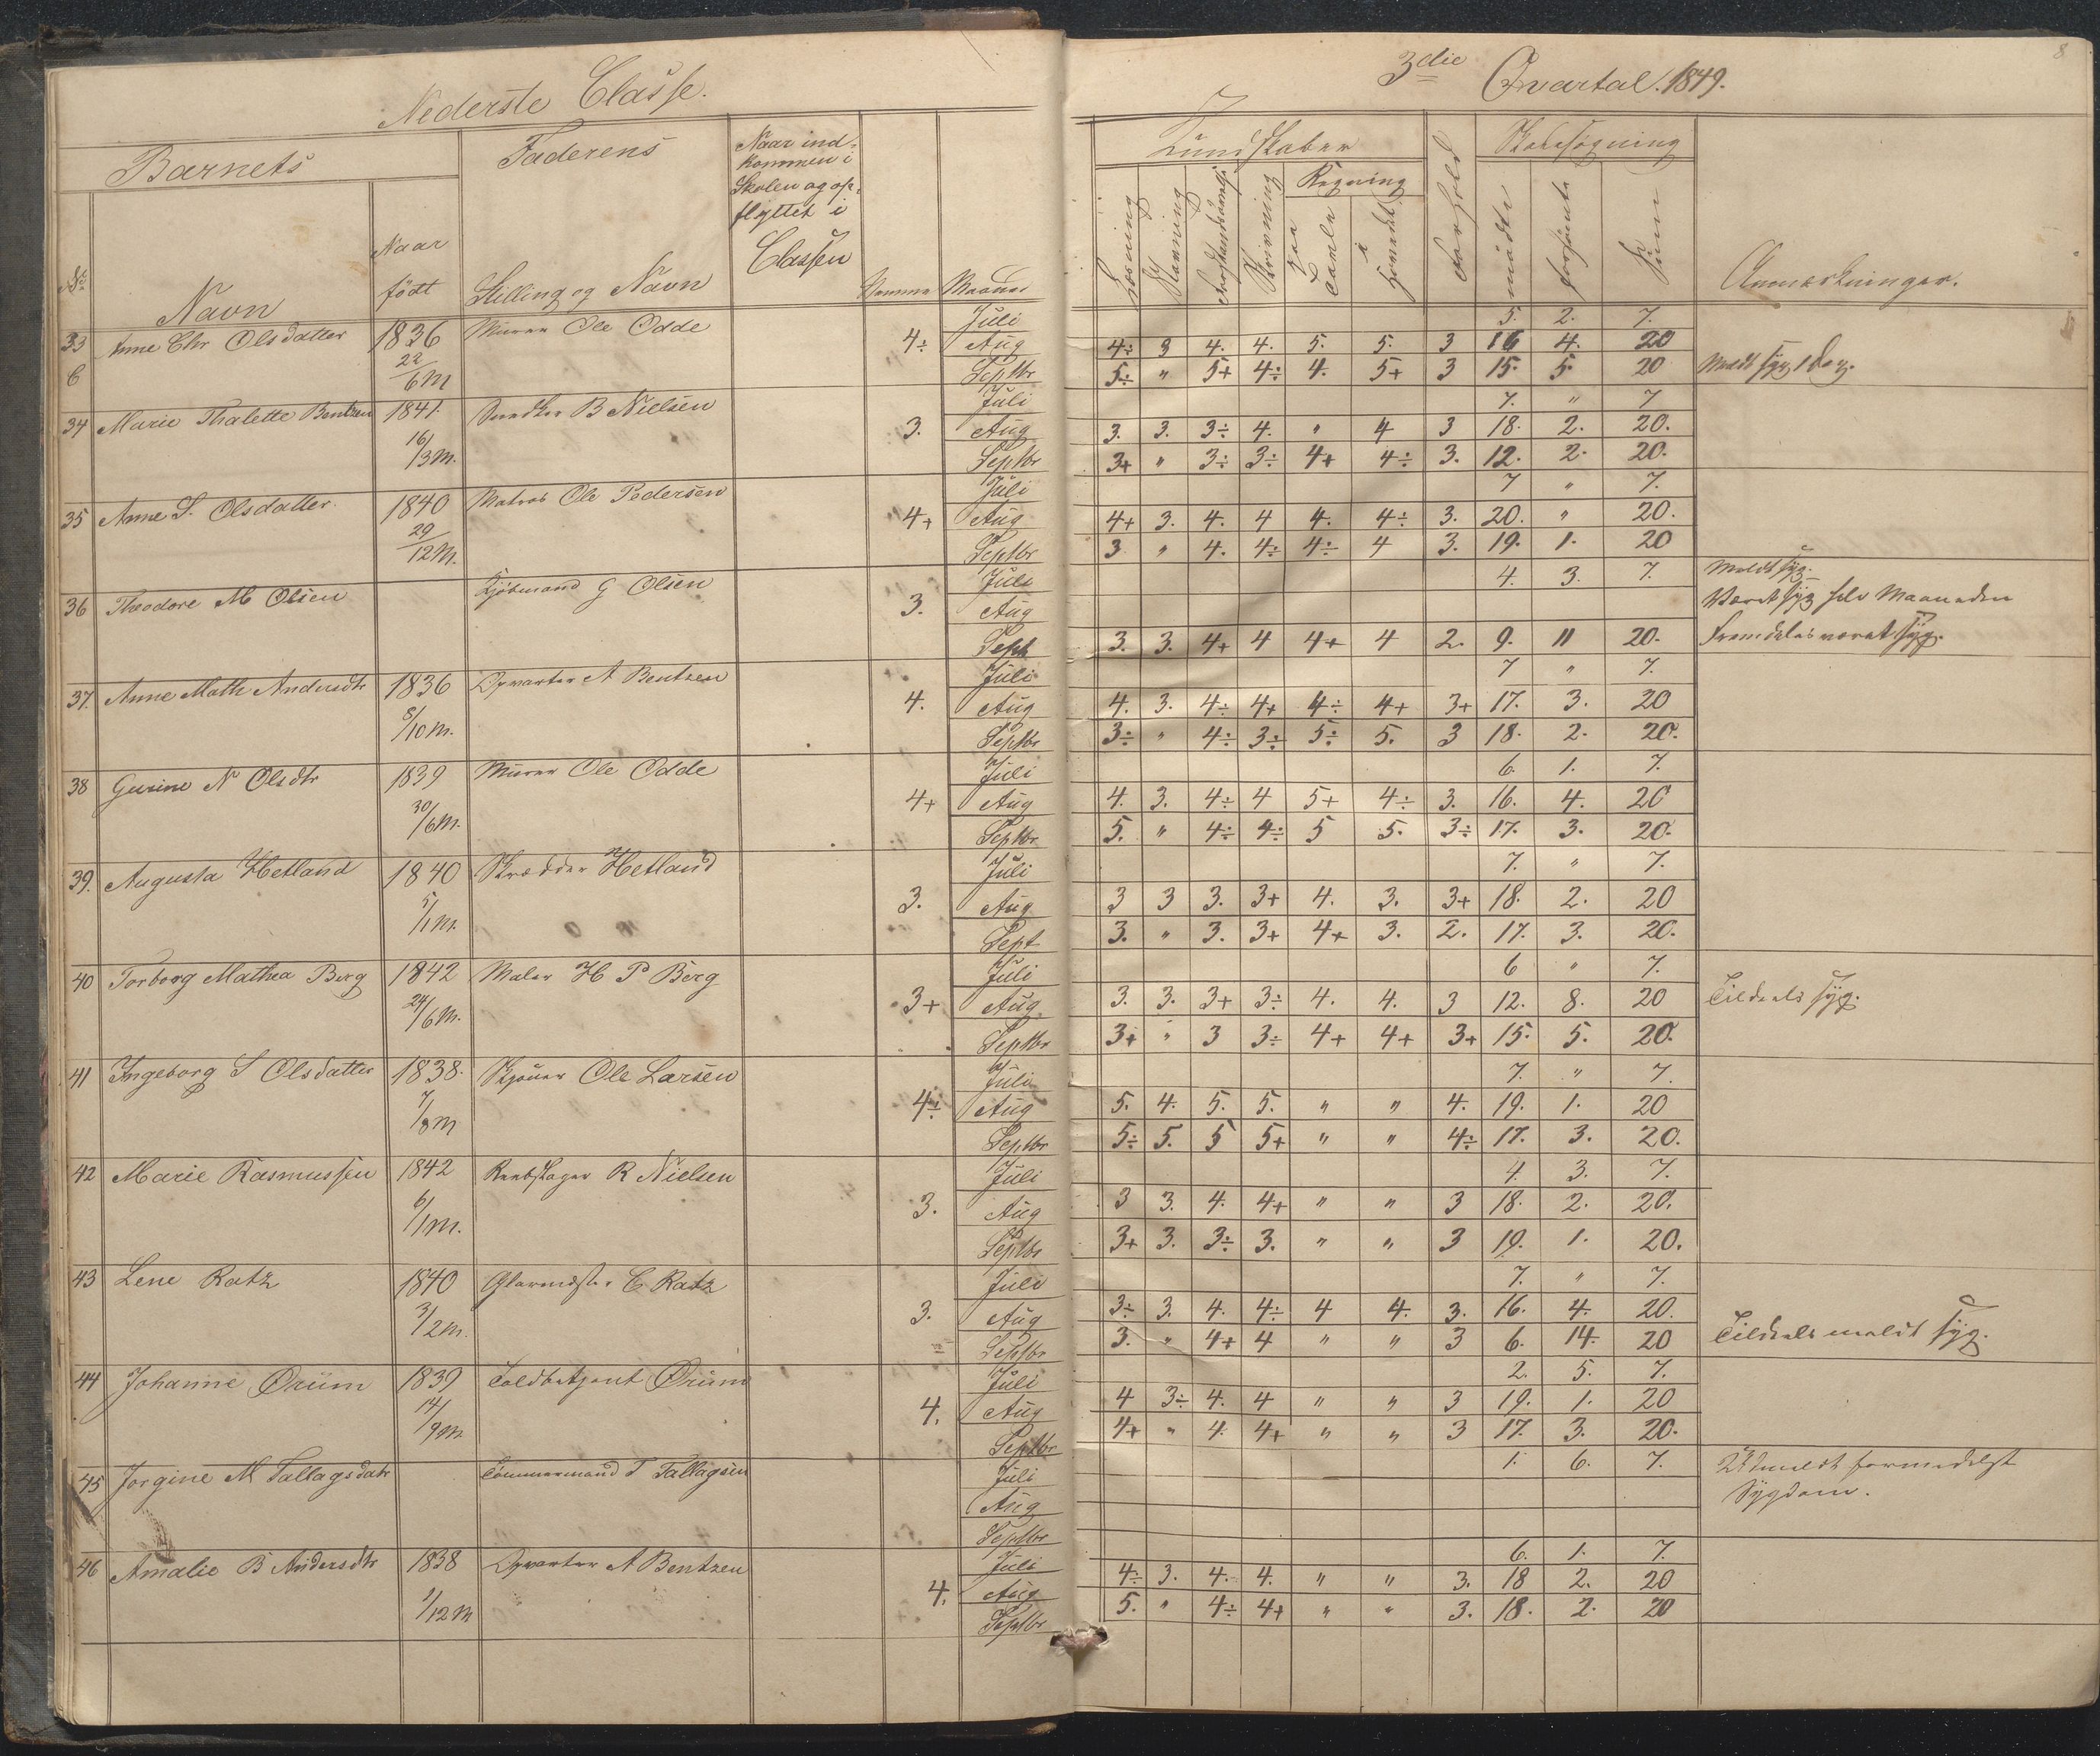 Nederste Classe.
3die Qvartal. 1849.
8
Barnets
Faderens
Naar ind-
kommen i
Skolen og op-
flyttet i
Classen
No
Navn
Naar
født
Stilling og Navn
Maaned
Kundskaber
Læsning
Skrivning
Regning
paa
Tavle
i
Hovedet
Forhold
Skolesøgning
mødte
forsømte
Sum
Anmærkninger.
33 Anne Chr Olsdatter 1836 Murer Ole Odde 4÷ Juli 5. 2. 7.
6 22/6M Aug 4÷ 3 4. 4. 5. 5. 3 16 4. 20
Septbr 5÷ " 5+ 4÷ 4. 5+ 3 15. 5. 20 Meldt syg 1 Dag.
34 Marie Thalette Bentzen 1841. B Nielsen 3. Juli 7. " 7
16/3M. Aug 3. 3. 3÷ 4. " 4 3 18. 2. 20.
Septbr 3+ " 3÷ 3÷ 4+ 4÷ 3. 12. 2. 20.
35 Anne S. Olsdatter 1840 Matros Ole Pedersen 4+ Juli 7 " 7.
29/12M. Aug 4+ 3. 4. 4 4. 4÷ 3. 20. " 20.
Septbr 3 " 4. 4÷ 4÷ 4 3. 19. 1. 20
36 Theodore M Olsen Kjøbmand G Olsen 3. Juli 4. 3. 7. Meldt syg.
Aug Været syg hele Maaneden
Sept 3. 3. 4+ 4 4+ 4 2. 9. 11 20. Fremdeles været syg.
37. Anne Math Andersdtr 1836 Opvarter A Bentzen 4. Juli 7 " 7.
8/10M. Aug 4. 3. 4÷ 4+ 4÷ 4+ 3+ 17. 3. 20
Septbr 3÷ " 4÷ 3÷ 5÷ 5. 3 18. 2. 20.
38 Gurine N Olsdtr 1839 Murer Ole Odde 4+ Juli 6. 1. 7.
30/6M. Aug 4. 3. 4÷ 4 5+ 4÷ 3. 16. 4. 20
Septbr 5. " 4÷ 4÷ 5 5. 3÷ 17. 3. 20.
39. Augusta Hetland 1840 Skrædder Hetland 3. Juli 7. " 7.
5/1M. Aug 3 3 3. 3+ 4. 3. 3+ 18. 2. 20
Sept 3. " 3. 3+ 4+ 3. 2. 17. 3. 20.
40 Torborg Mathea Berg 1842 Maler H P Berg 3+ Juli 6 " 7.
24/6M. Aug 3. 3. 3+ 3÷ 4. 4. 3 12. 8. 20 Tildeels syg.
Septbr 3+ " 3 3÷ 4+ 4+ 3+ 15. 5. 20.
41 Ingeborg S Olsdatter 1838. Skjøuer Ole Larsen 4÷ Juli 7. " 7.
7/8M Aug 5. 4. 5. 5. " " 4. 19. 1. 20
Septbr 5÷ 5. 5 5+ " " 4÷ 17. 3. 20.
42 Marie Rasmussen 1842 Reebslager R Nielsen 3. Juli 4. 3. 7.
6/1M. Aug 3 3. 4. 4+ " " 3 18. 2. 20.
Septbr 3+ 3. 3÷ 3. " " 3 19. 1. 20.
43 Lene Ratz 1840 Glarmester C. Ratz 3. Juli 7. " 7.
3/2M. Aug 3÷ 3. 4. 4÷ 4 4. 3. 16. 4. 20.
Septbr 3. " 4+ 4 " " 3 6. 14. 20 Tildeels meldt syg.
44 Johanne Ørum 1839 Toldbetjent Ørum 4. Juli 2. 5. 7.
14/9M Aug 4 3÷ 4. 4 " " 3 19. 1. 20
Septbr 4+ " 4. 4+ " " 3 17. 3. 20.
45 Jorgine M Tallagsdatr Tømmermand T Tallagsen Juli 1. 6. 7. Udmeldt formedelst
Aug Sygdom.
Septbr
46 Amalie B Andersdtr 1838 Opvarter A Bentzen 4. Juli 6. 1. 7.
1/12M Aug 4÷ 3. 4. 4. " " 3. 18 2. 20
Septbr 5. " 4÷ 4+ " " 3. 18. 2. 20